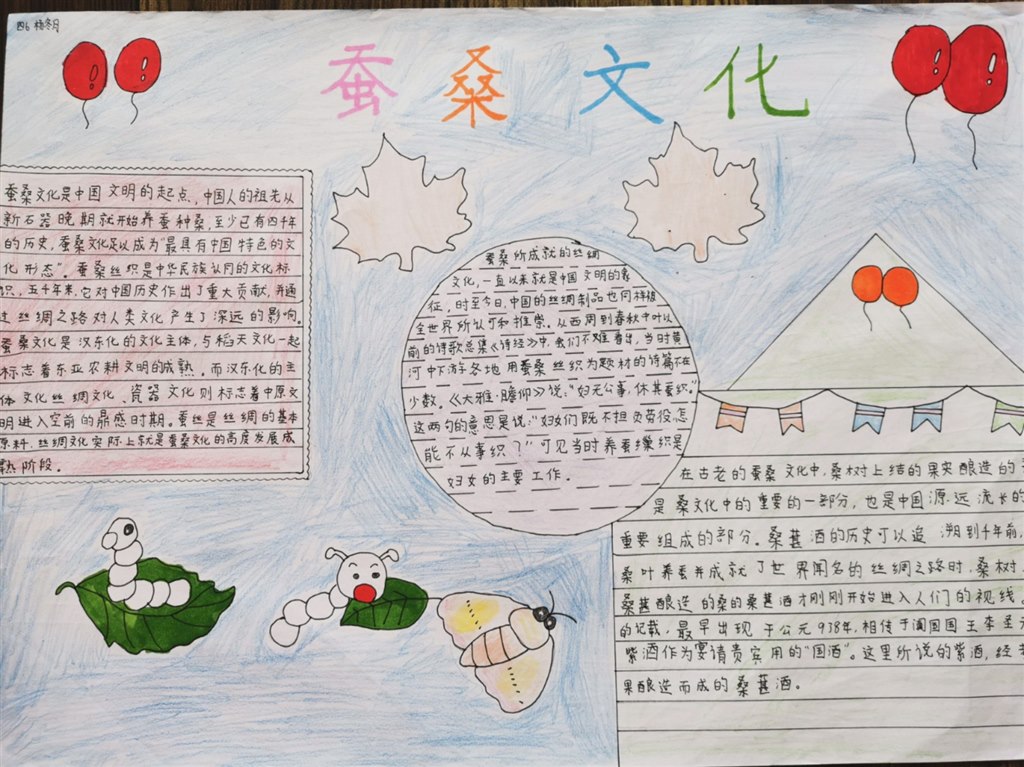 四6 杨冬月
蚕桑文化
蚕桑文化是中国文明的起点,中国人的祖先从
新石器晚期就开始养蚕种桑,至少已有四千年
的历史,蚕桑文化足以成为"最具有中国特色的文
化形态"。蚕桑丝织是中华民族认同的文化标
识,五千年来,它对中国历史作出了重大贡献,并通
过丝绸之路对人类文化产生了深远的影响。
蚕桑文化是汉东化的文化主体,与稻天文化一起
标志着东亚农耕文明的成熟。而汉东化的主
体文化丝绸文化、瓷器文化则标志着中原文
明进入空前的鼎盛时期。蚕丝是丝绸的基本
原料,丝绸文化实际上就是蚕桑文化的高度发展成
熟阶段。
蚕桑所成就的丝绸
文化,一直以来就是中国文明的象
征,时至今日,中国的丝绸制品也同样被
全世界所认可和推崇。从西周到春秋中叶以
前的诗歌总集《诗经》中,我们不难看出,当时黄
河中下游各地用蚕桑丝织为题材的诗篇不在
少数。《大雅·瞻仰》说:"妇无公事,休其蚕织。"
这两句的意思是说:"妇女们既不担负劳役怎
能不从事织?"可见当时养蚕缫织是
妇女的主要工作。
在古老的蚕桑文化中,桑树上结的果实酿造的
是桑文化中的重要的一部分,也是中国源远流长的
重要组成的部分。桑葚酒的历史可以追溯到千年前,
桑叶养蚕并成就了世界闻名的丝绸之路时,桑树
桑葚酿造的桑的桑葚酒才刚刚开始进入人们的视线。
的记载,最早出现于公元938年,相传于阗国国王李圣
紫酒作为宴请贵宾用的"国酒"。这里所说的紫酒,经
果酿造而成的桑葚酒。